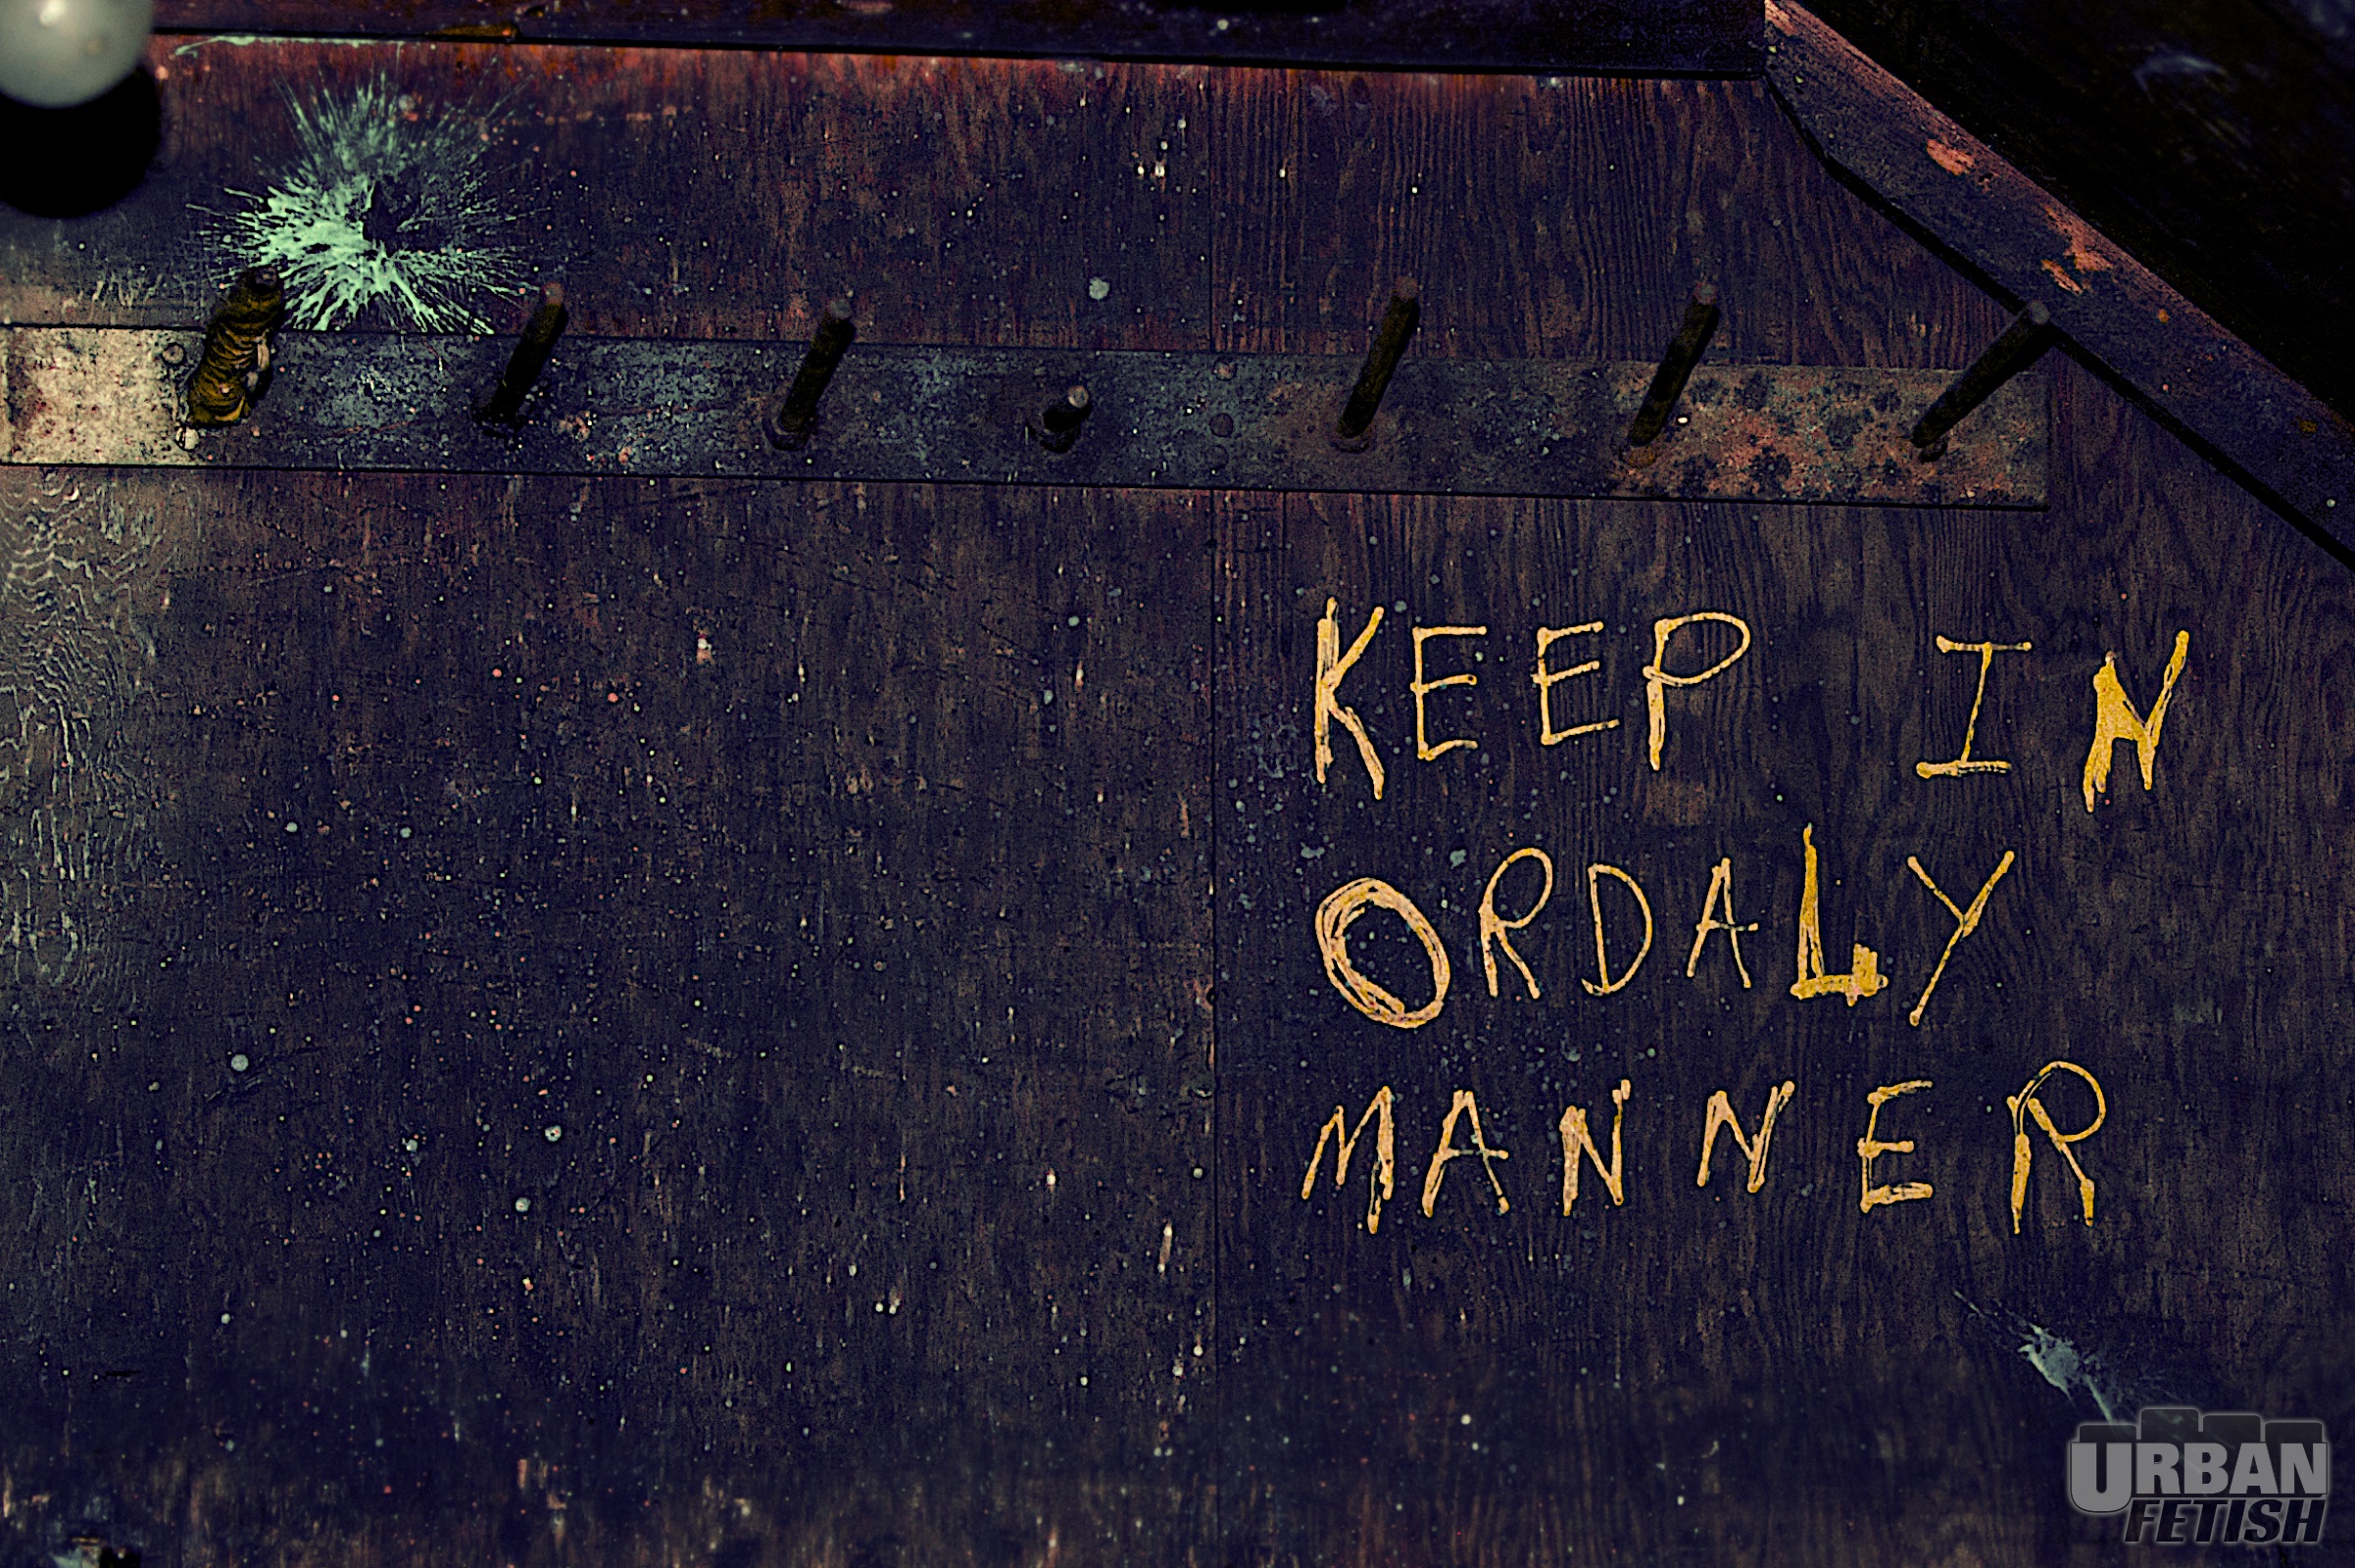 KEEP IN
ORDALY
MANNER
URBAN
FETISH